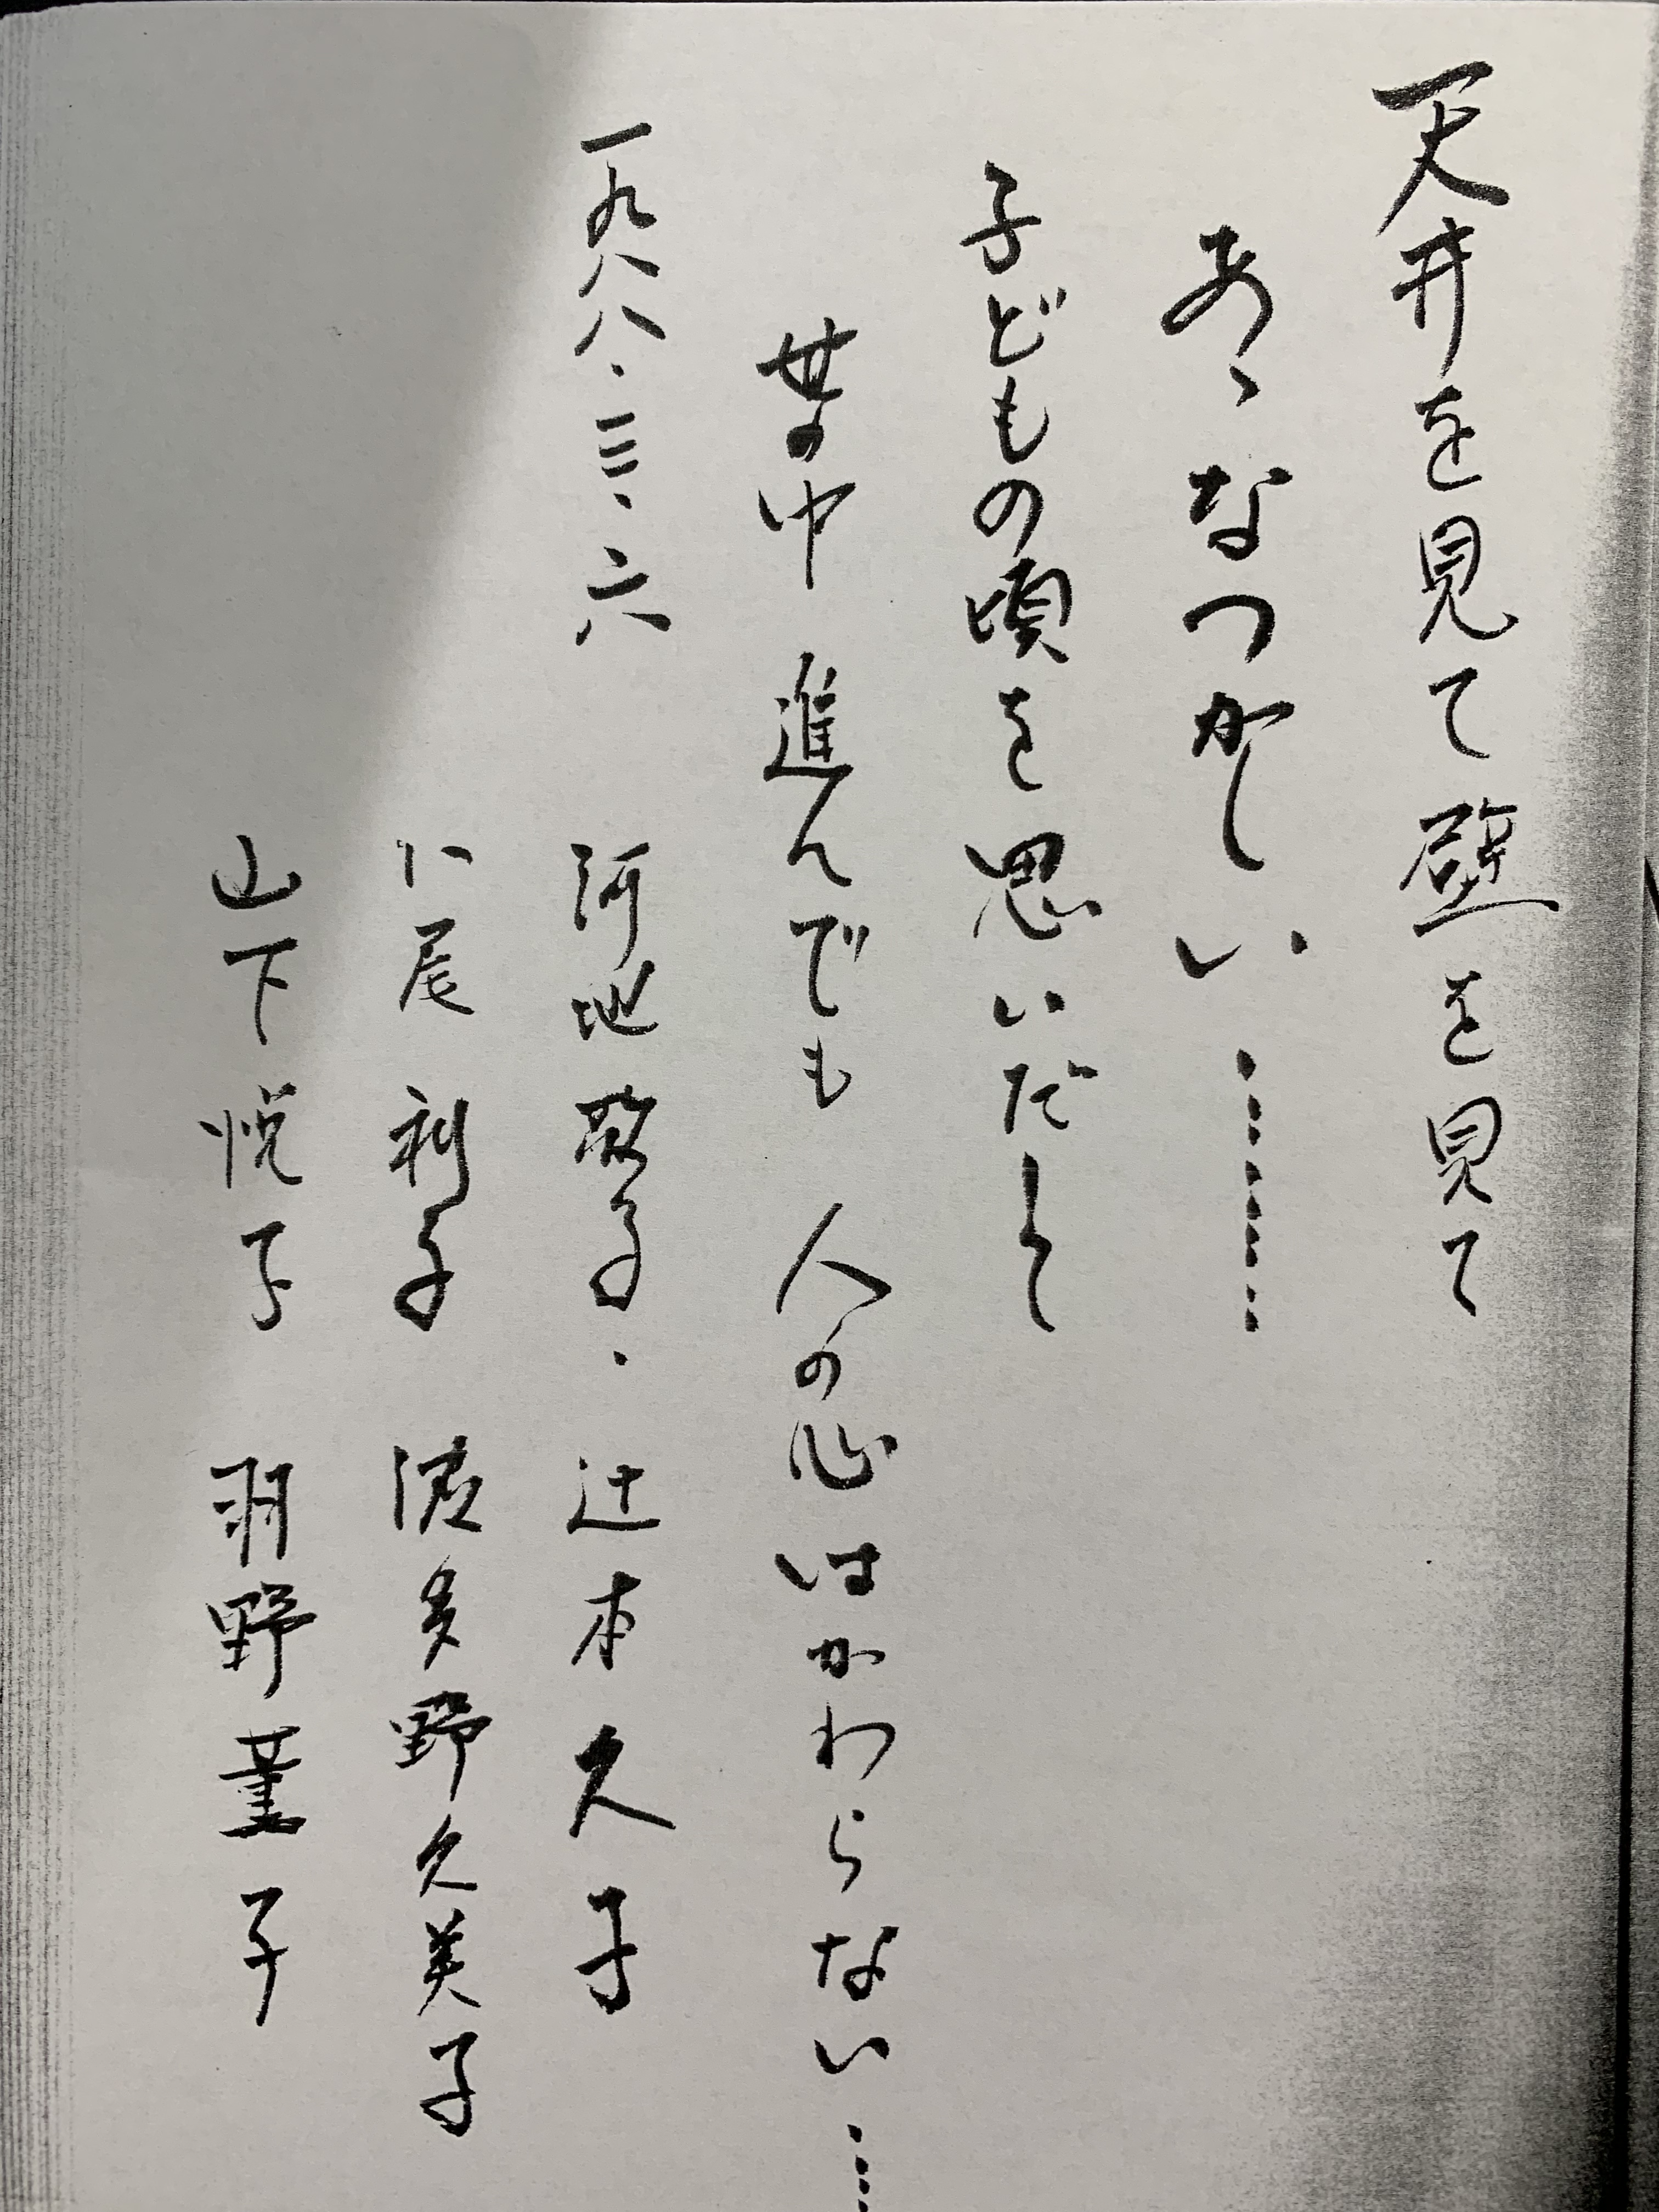 天井を見て壁を見て
あゝなつかしい………
子どもの頃を思いだして
世の中 進んでも 人の心はかわらない…
一九八八・三・六
河地 子・辻本久子
仁尾 利子 波多野久美子
山下悦子 羽野菫子